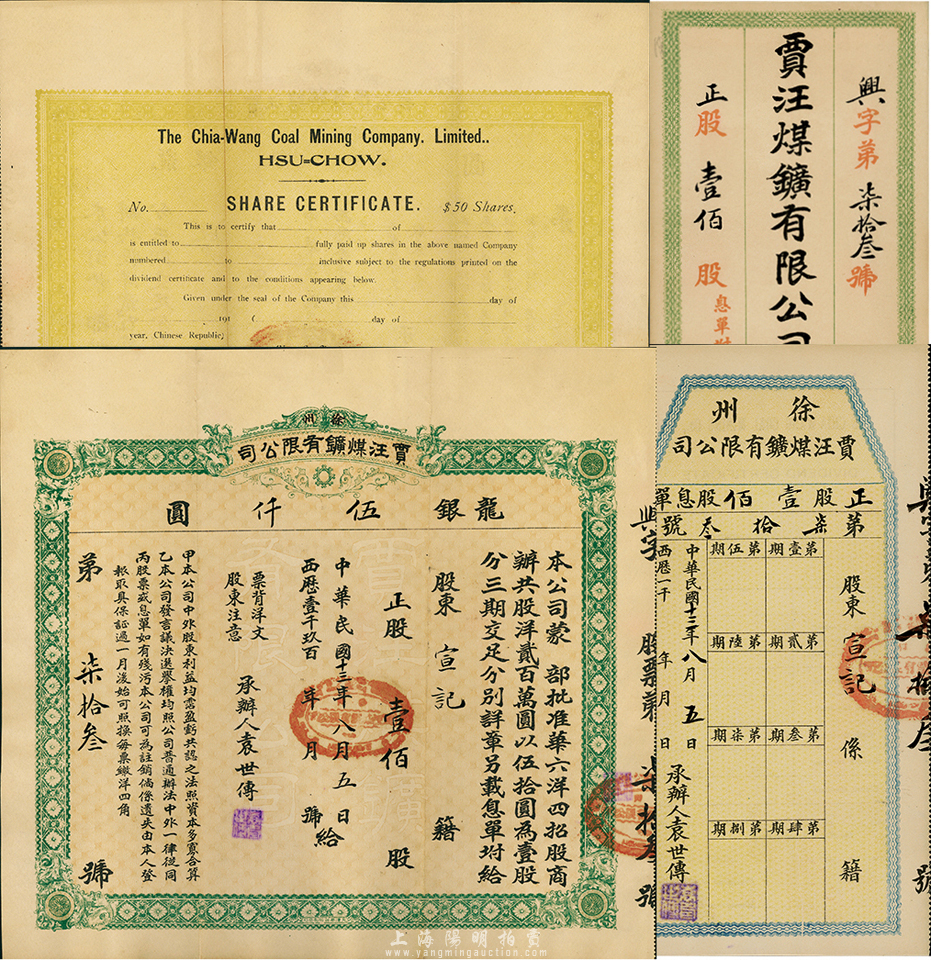 The Chia-Wang Coal Mining Company. Limited..
HSU=CHOW.
No. SHARE CERTIFICATE. $50 Shares.
This is to certify that of
is entitled to fully paid up shares in the above named Company
numbered to inclusive subject to the regulations printed on the
dividend certificate and to the conditions appearing below.
Given under the seal of the Company this day of
191 ( day of
year, Chinese Republic)
興字苐柒拾叁號
賈汪煤鑛有限公司
正股壹佰股
息單附
徐州
賈汪煤鑛有限公司
龍銀伍仟圓
本公司蒙 部批准華六洋四招股商
辦共股洋貳百萬圓以伍拾圓為壹股
分三期交足分別詳章另載息單坿給
股東 宣記 籍
正股 壹佰 股
中華民國十三年八月五日
西歷壹千玖百 年 月 號給
承辦人袁世傳
票背洋文
股東注意
甲本公司中外股東利益均霑盈虧共認之法照資本多寡合算
乙本公司發言議決選舉權均照公司普通辦法中外一律從同
丙股票或息單如有殘污本公司可為註銷倘係遺失由本人登
報取具保証過一月後始可照換每票繳洋四角
苐柒拾叁號
徐州
賈汪煤鑛有限公司
正股壹佰股息單
第柒拾叁號
股東 宣記 係 籍
第壹期
第貳期
第叁期
第肆期
第伍期
第陸期
第柒期
第捌期
中華民國十三年八月五日
西歷一千 年 月 日
承辦人袁世傳
興字 股票苐柒拾叁號
上海陽明拍賣
www.yangmingauction.com